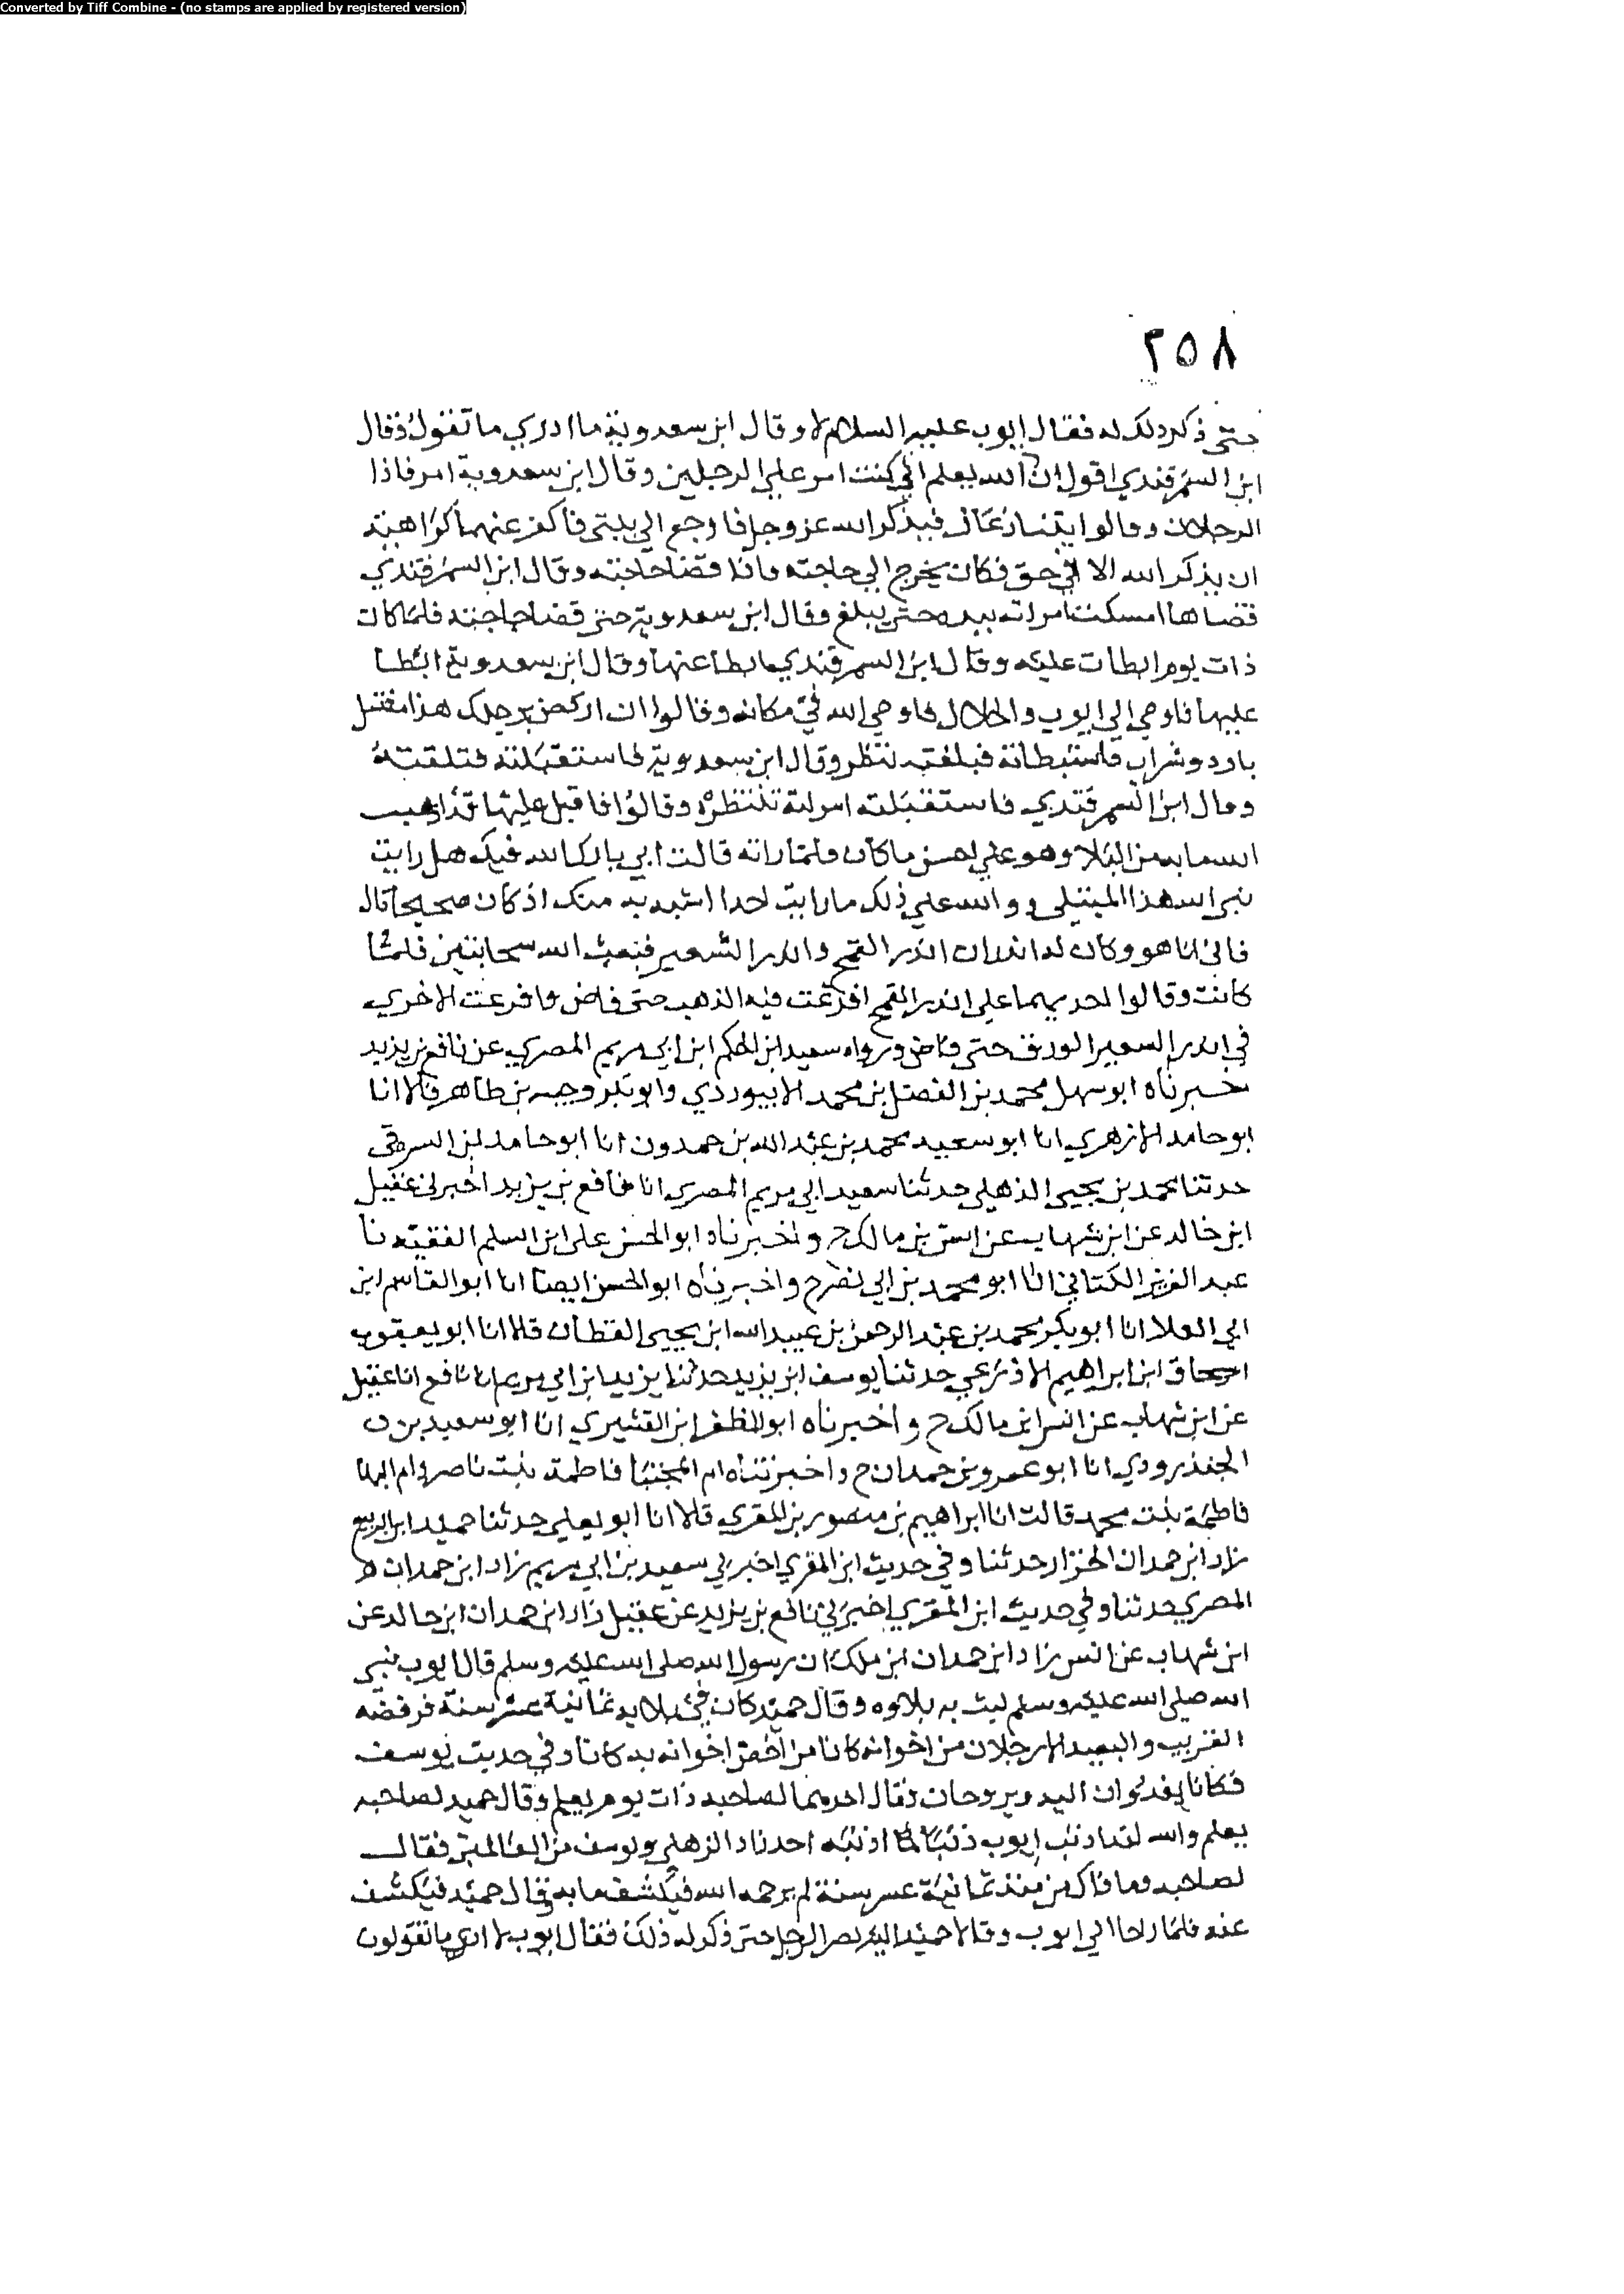 Converted by Tiff Combine - (no stamps are applied by registered version)
٢٥٨
حتى ذكر ذلك له فقال ايوب عليه السلام لا وقال ابن سعدوية ما ادري ما تقول وقال
ابن السمرقندي اقول ان الله يعلم اني كنت امر على الرجلين وقال ابن سعدوية امر فاذا
الرجلان وقالوا يتنازعان فيذكر الله عز وجل فارجع الى بيتي فاكفر عنهما كراهية
ان يذكر الله الا في حق فكان يخرج الى حاجته فاذا قضا حاجته وقال ابن السمرقندي
قضاها امسكت امراته بيده حتى يبلغ وقال ابن سعدوية حتى قضا حاجته فلما كان
ذات يوم ابطات عليه وقال ابن السمرقندي فابطا عنها وقال ابن سعدوية ابطا
عليها فاوحي الى ايوب والخلال فاوحى الله في مكانه وقالوا ان اركض برجلك هذا مغتسل
بارد وشراب فاستبطاته فبلغته تنظر وقال ابن سعدوية فاستقبلته فتلقته
وقال ابن السمرقندي فاستقبلته امراته تنتظره وقالوا فاقبل عليها قد اذهب
الله ما به من البلا وهو على احسن ما كان فلما راته قالت اي بارك الله فيك هل رايت
نبي الله هذا المبتلى ووالله على ذلك ما رايت احدا اشبه به منك اذ كان صحيحا قال
فاني انا هو وكان له اندران اندر القمح واندر الشعير فبعث الله سحابتين فلما
كانت وقالوا احديهما على اندر القمح افرغت فيه الذهب حتى فاض وافرغت الاخرى
في اندر الشعير الورق حتى فاض ورواه سعيد ابن الحكم ابن ابي مريم المصري عن نافع بن يزيد
اخبرناه ابو سهل محمد بن الفضل بن محمد الابيوردي وابو بكر وجيه بن طاهر قالا انا
ابو حامد الازهري انا ابو سعيد محمد بن عبد الله بن حمدون انا ابو حامد ابن الشرقي
حدثنا محمد بن يحيى الذهلي حدثنا سعيد ابي مريم المصري انا نافع بن يزيد اخبرني عقيل
ابن خالد عن ابن شهاب عن انس بن مالك ح واخبرناه ابو الحسن على ابن المسلم الفقيه نا
عبد العزيز الكتاني انا ابو محمد بن ابي نصر ح واخبرناه ابو الحسن ايضا انا ابو القاسم ابن
ابي العلا انا ابو بكر محمد بن عبد الرحمن بن عبيد الله ابن يحيى القطان قالا انا ابو يعقوب
اسحاق ابن ابراهيم الاذرعي حدثنا يوسف ابن يزيد حدثنا يزيد ابن ابي مريم انا نافع انا عقيل
عن ابن شهاب عن انس ابن مالك ح واخبرناه ابو المظفر ابن القشيري انا ابو سعيد بن
الجنزرودي انا ابو عمرو بن حمدان ح واخبرتناه ام المجتبا فاطمة بنت ناصر وام البها
فاطمة بنت محمد قالت انا ابراهيم بن منصور بن المقري قالا انا ابو يعلي حدثنا حميد ابن الربيع
زاد ابن حمدان الخزاز حدثنا وفي حديث ابن المقري اخبرني سعيد بن ابي مريم زاد ابن حمدان
المصري حدثنا وفي حديث ابن المقري اخبرني نافع بن يزيد عن عقيل زاد ابن حمدان ابن خالد عن
ابن شهاب عن انس زاد ابن حمدان ابن ملك ان رسول الله صلى الله عليه وسلم قال ايوب نبي
الله صلى الله عليه وسلم لبث به بلاوه وقال حميد كان في بلايه ثمانية عشر سنة فرفضه
القريب والبعيد الا رجلان من اخوانه كانا من اخص اخوانه به كانا وفي حديث يوسف
فكانا يغدوان اليه ويروحان فقال احدهما لصاحبه ذات يوم يعلم وقال حميد لصاحبه
يعلم والله لقد اذنب ايوب ذنبا ما اذنبه احد زاد الذهلي ويوسف من العالمين فقال
لصاحبه وما ذاك من منذ ثمانية عشر سنة لم يرحمه الله فيكشف ما به وقال حميد فيكشف
عنه فلما راحا الى ايوب وقالا حميد اليه لم يصبر الرجل حتى ذكر له ذلك فقال ايوب لا ادري ما تقولون